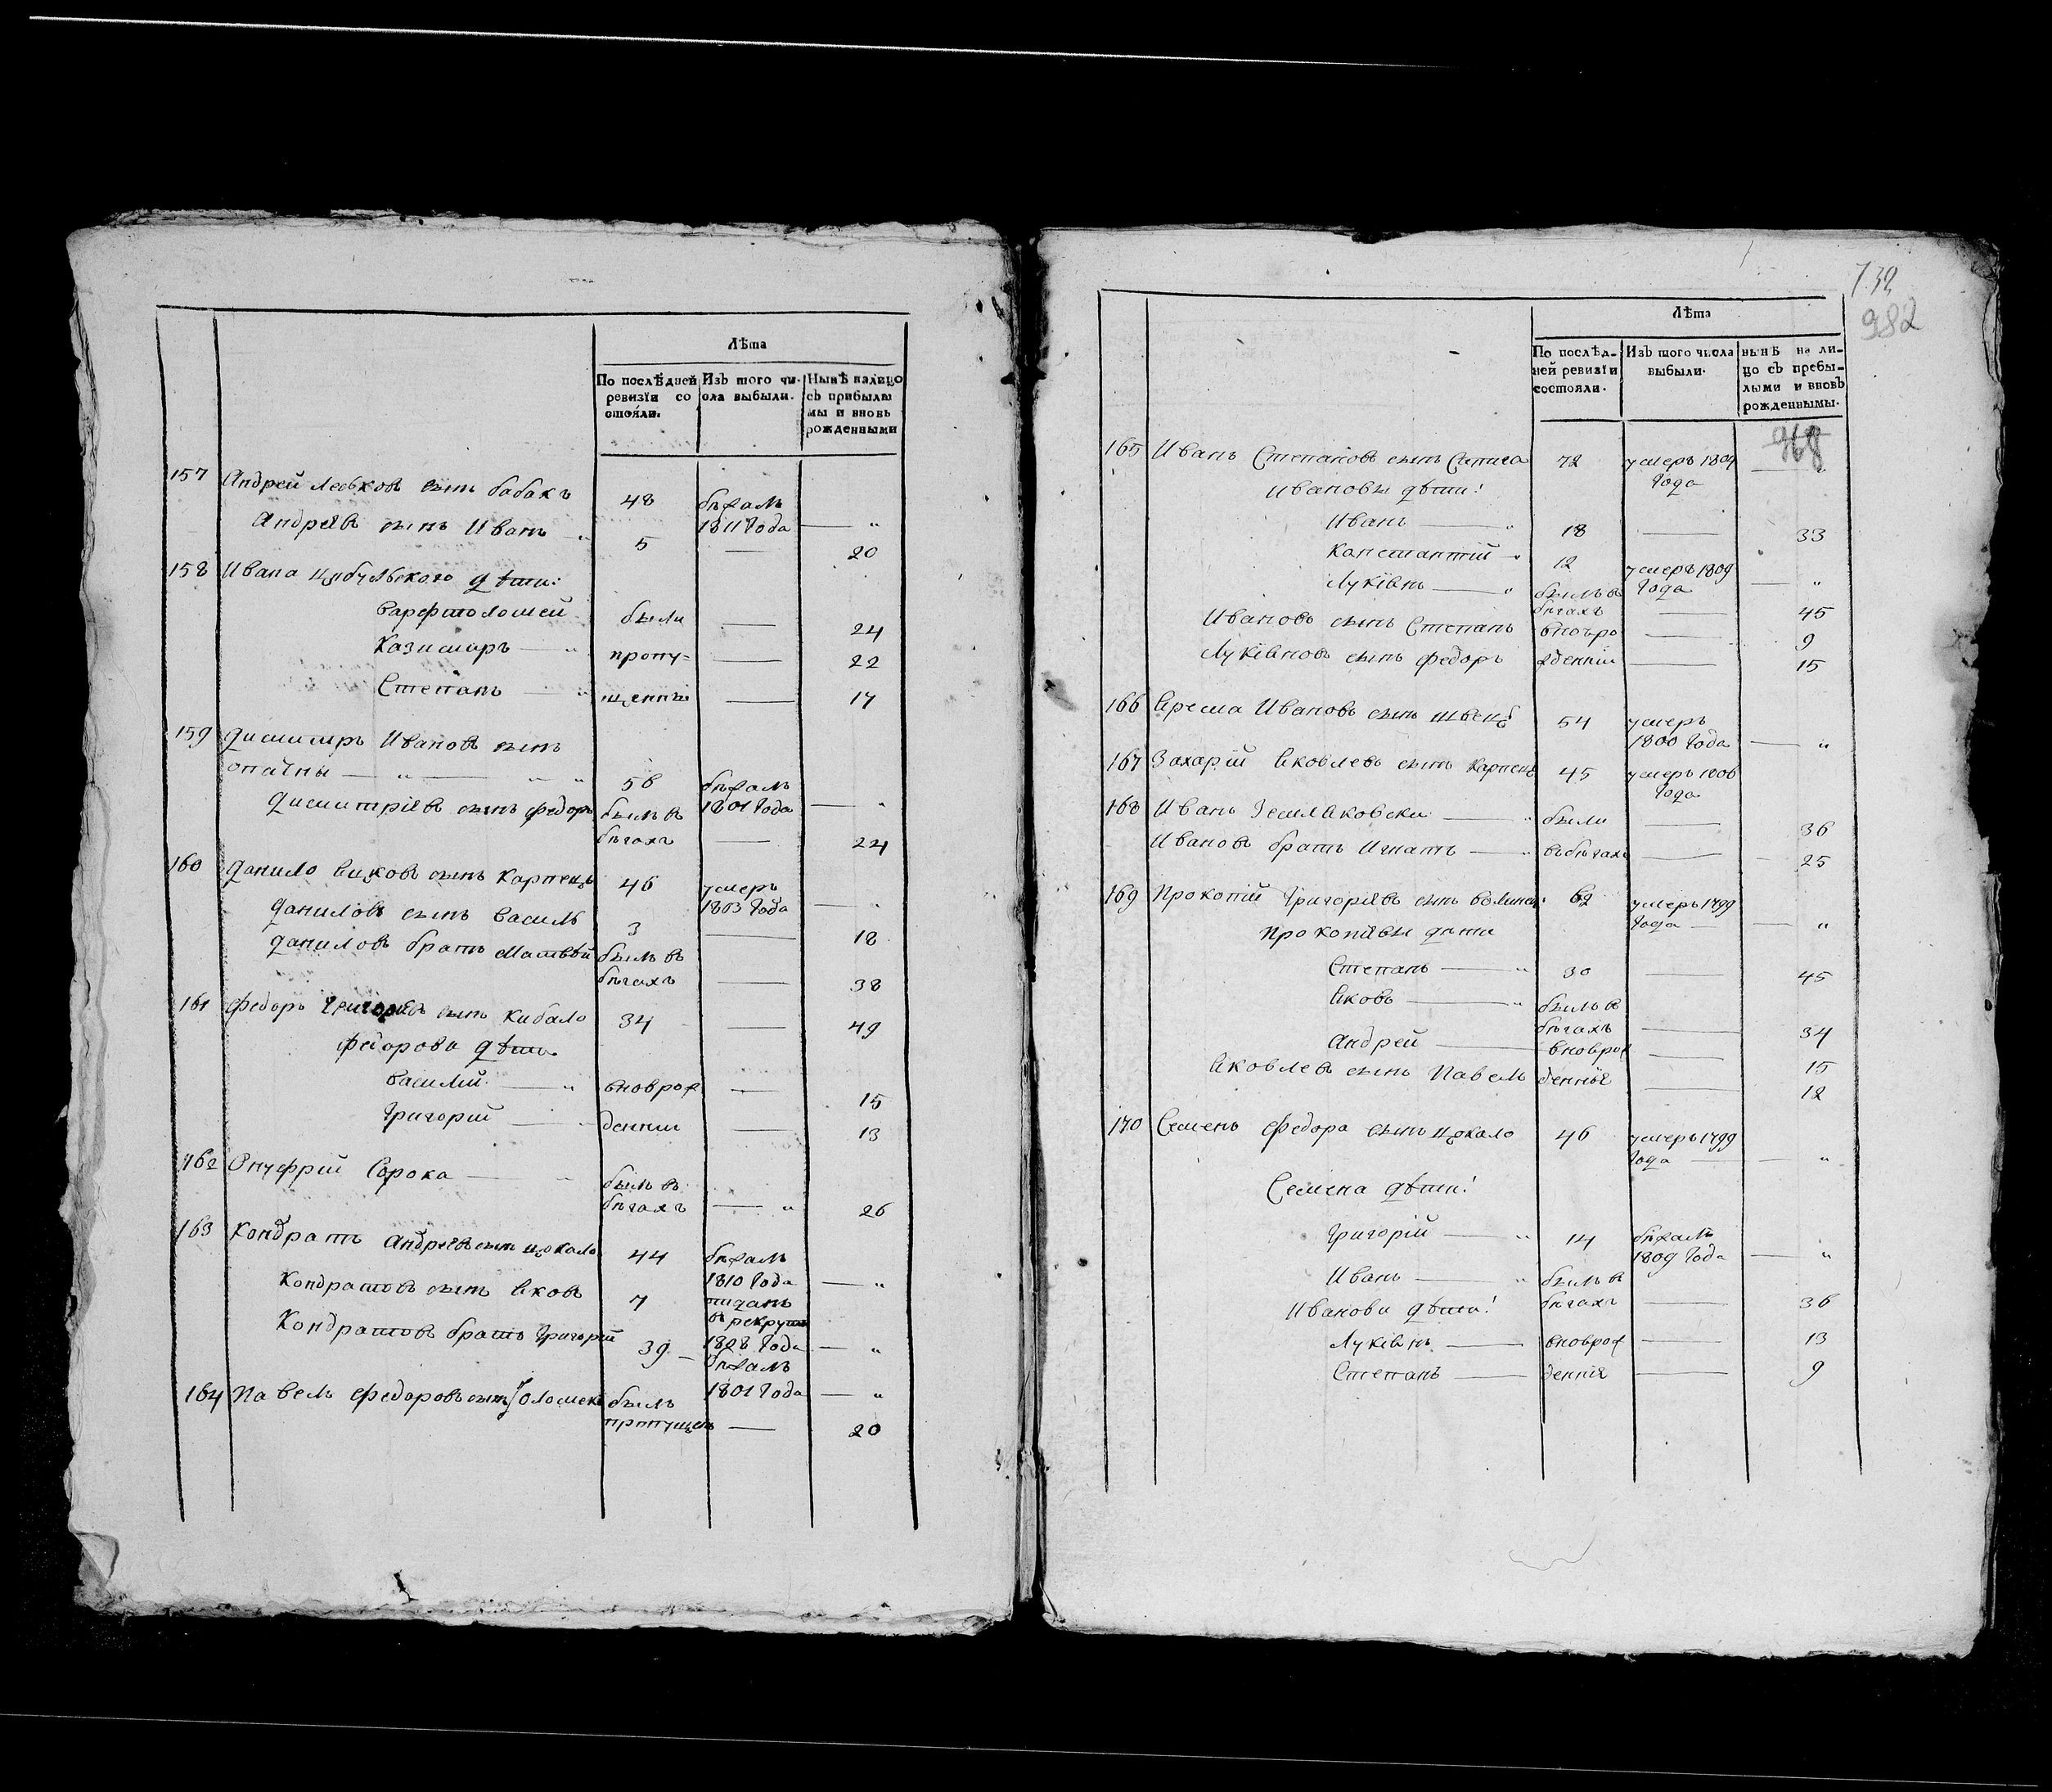 Лѣта
По послѣдней Изъ того чи- Нынѣ налицо
ревизїи со сла выбыли. съ прибылы
стояли. мы и вновь
рожденными
157 Андрей Левков сынъ бабакъ 48 бѣжалъ
1811 года — "
Андрѣев сынъ Иванъ 5 — 20
158 Ивана цыбульского дѣти:
варфтоломей были — 24
Казимиръ — " пропу= — 22
Степанъ — " щеннїи — 17
159 димитръ Иванов сынъ
опачны — " — " " 56 бѣжалъ
1801 года — "
димитрїев сынъ федоръ былъ в
бѣгахъ — 24
160 данило сынъ карпенко 46 умеръ
1803 года — "
данилов сынъ василь 3 — 18
данилов братъ Матвѣй былъ в
бѣгахъ — 38
161 федоръ григорїев сынъ кибало 34 — 49
федорова дѣти
василїй — " вноврож — 15
григорїй — денни — 13
162 Онуфрїй Сорока — былъ в
бѣгахъ — " 26
163 Кондратъ андрѣев сынъ цокало 44 бѣжалъ
1810 года — "
Кондратов сынъ яков 7
в рекруты
1808 года — "
Кондратов братъ григорїй 39 — бѣжалъ
1801 года — "
164 Павелъ федоровъ сынъ былъ
пропущенъ — 20
732
982
Лѣта
По послѣд- Изъ того числа нынѣ на ли-
ней ревизїи выбыли. цо съ прибы-
состояли. лыми и вновь
рожденнымы.
968
165 Иванъ Степановъ сынъ 72 умеръ 1804 — "
года
Ивановы дѣти:
Иванъ — " 18 — 33
Констант​їй " 12 умеръ 1809 — "
года
Лукїянъ — " былъ в
бѣгахъ — 45
Ивановъ сынъ Степанъ вновро — 9
Лукїянов сынъ федоръ жденнїи — 15
166 Ярема Иванов сынъ швецъ 54 умеръ
1800 года — "
167 Захарїй Яковлевъ сынъ карпенко 45 умеръ 1806
года
168 Иванъ Земляковски — " были — 36
Иванов братъ Игнатъ — " въ бѣгахъ — 25
169 Прокопїй григорїев сынъ 62 умеръ 1799
года — — "
прокопїевы дити
Степанъ — " 30 — 45
Яковъ — " былъ в
бѣгахъ — 34
Андрей — вноврож — 15
Яковлев сынъ Павелъ деннїя — 12
170 Семенъ федора сынъ цокало 46 умеръ 1799
года — — "
Семена дѣти:
григорїй — " 14 бѣжалъ
1809 года — "
Иванъ — " былъ в
бѣгахъ — 36
Иванови дѣти:
Лукїянъ — вноврож — 13
Степанъ — деннїя — 9